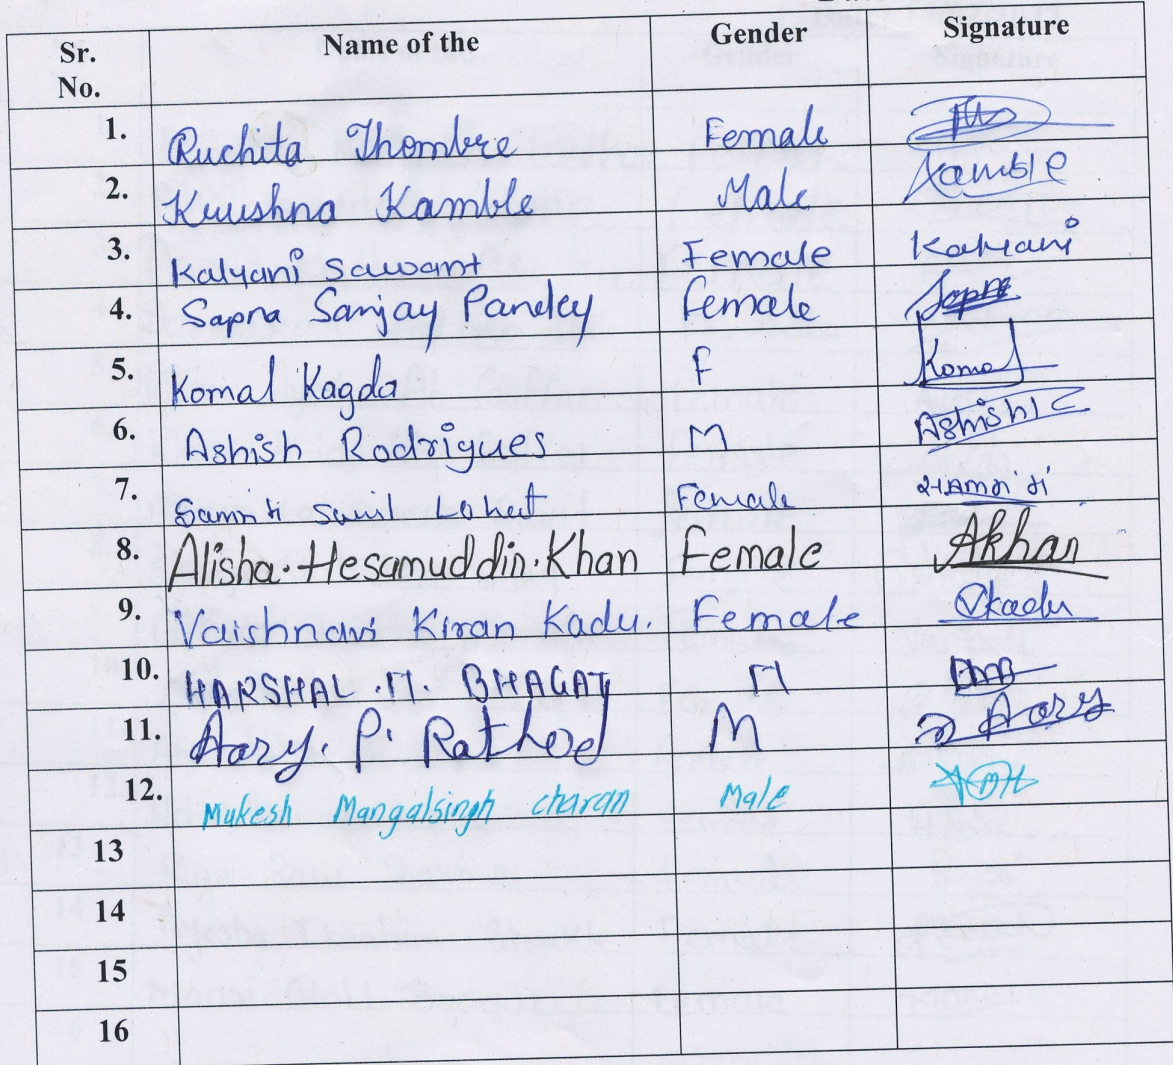 Sr. No. Name of the Gender Signature
1. Ruchita Thombre Female
2. Krushna Kamble Male Kamble
3. Kalyani Sawant Female Kalyani
4. Sapna Sanjay Pandey Female Sapna
5. Komal Kagda F Komal
6. Ashish Rodrigues M Ashish
7. Female
8. Alisha.Hesamuddin.Khan Female Akhan
9. Vaishnavi Kiran Kadu. Female Vkadu
10. HARSHAL .M. BHAGAT M
11. Aary. P. Rathod M Aary
12. Mukesh Mangalsingh charan Male
13
14
15
16